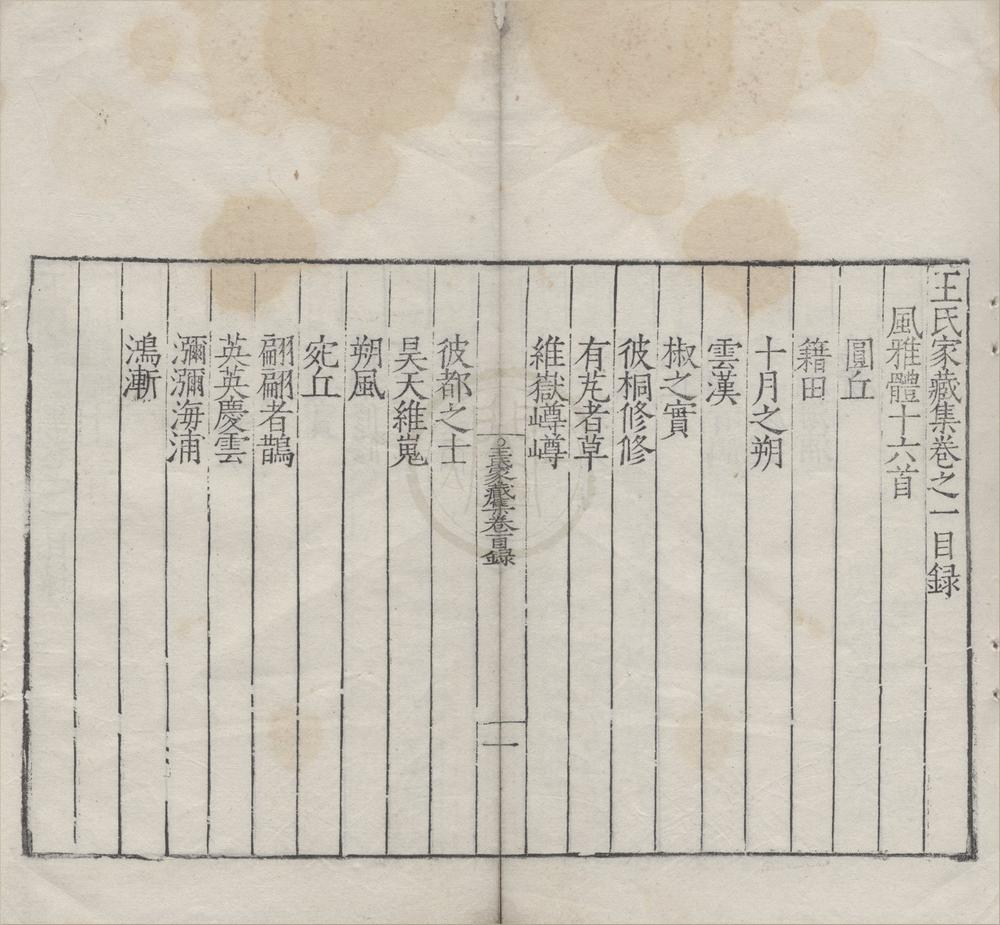 王氏家藏集卷之一目録
風雅體十六首
圓丘
籍田
十月之朔
雲漢
椒之實
彼桐修修
有芃者草
維嶽嶟嶟
王氏家藏集卷一目録
一
彼都之士
昊天維嵬
朔風
宛丘
翩翩者鵲
英英慶雲
瀰瀰海浦
鴻漸